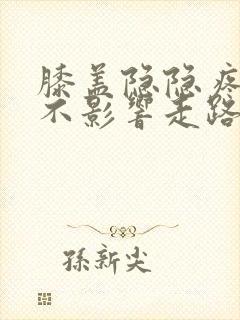 膝盖隐隐疼
不影响走路
孫新尖